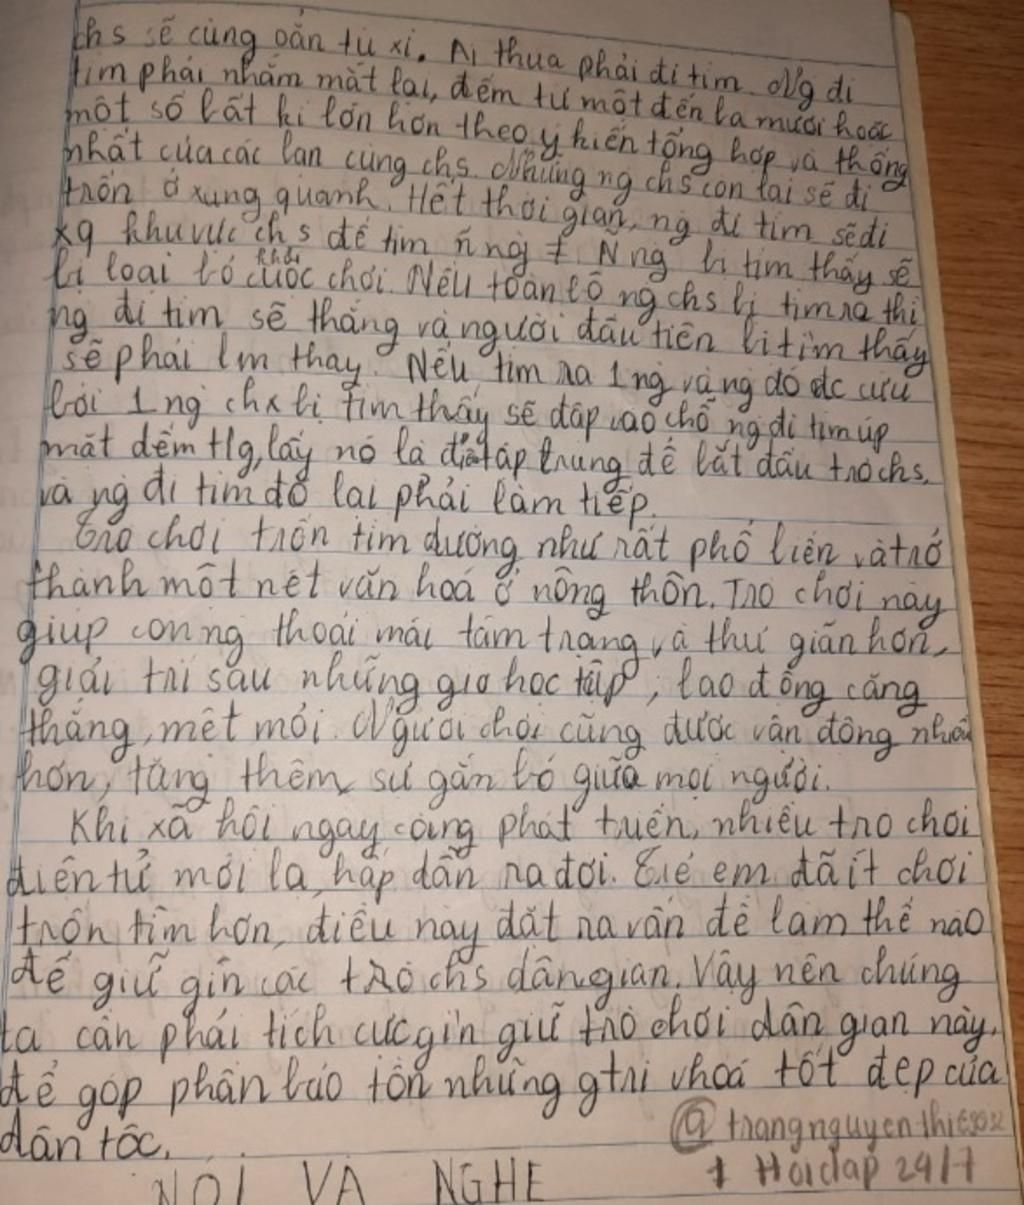 chs sẽ cùng oẳn tù xì. Ai thua phải đi tìm. Ng đi
tìm phải nhắm mắt lại, đếm từ một đến ba mươi hoặc
một số bất kì lớn hơn theo ý kiến tổng hợp và thống
nhất của các bạn cùng chs. Những ng chs còn lại sẽ đi
trốn ở xung quanh. Hết thời gian, ng đi tìm sẽ đi
xq khu vực chs để tìm ñ ng t. Ñ ng bị tìm thấy sẽ
bị loại bỏ khỏi cuộc chơi. Nếu toàn bộ ng chs bị tìm ra thì
ng đi tìm sẽ thắng và người đầu tiên bị tìm thấy
sẽ phải lm thay. Nếu tìm ra 1 ng và ng đó đc cứu
bởi 1 ng chx bị tìm thấy sẽ đập vào chỗ ng đi tìm úp
mặt đếm tg, lấy nó là địa tập trung để bắt đầu trò chs.
và ng đi tìm đó lại phải làm tiếp.
Trò chơi trốn tìm dường như rất phổ biến và trở
thành một nét văn hoá ở nông thôn. Trò chơi này
giúp con ng thoải mái tâm trạng và thư giãn hơn,
giải trí sau những giờ học tập, lao động căng
thẳng, mệt mỏi. Người chơi cũng được vận động nhiều
hơn, tăng thêm sự gắn bó giữa mọi người.
Khi xã hội ngày càng phát triển, nhiều trò chơi
điện tử mới lạ, hấp dẫn ra đời. Trẻ em đã ít chơi
trốn tìm hơn, điều này đặt ra vấn đề làm thế nào
để giữ gìn các trò chs dân gian. Vậy nên chúng
ta cần phải tích cực gìn giữ trò chơi dân gian này,
để góp phần bảo tồn những gtrị vhoá tốt đẹp của
dân tộc.
@trangnguyenthi
+ Hoidap 24/7
NÓI VÀ NGHE